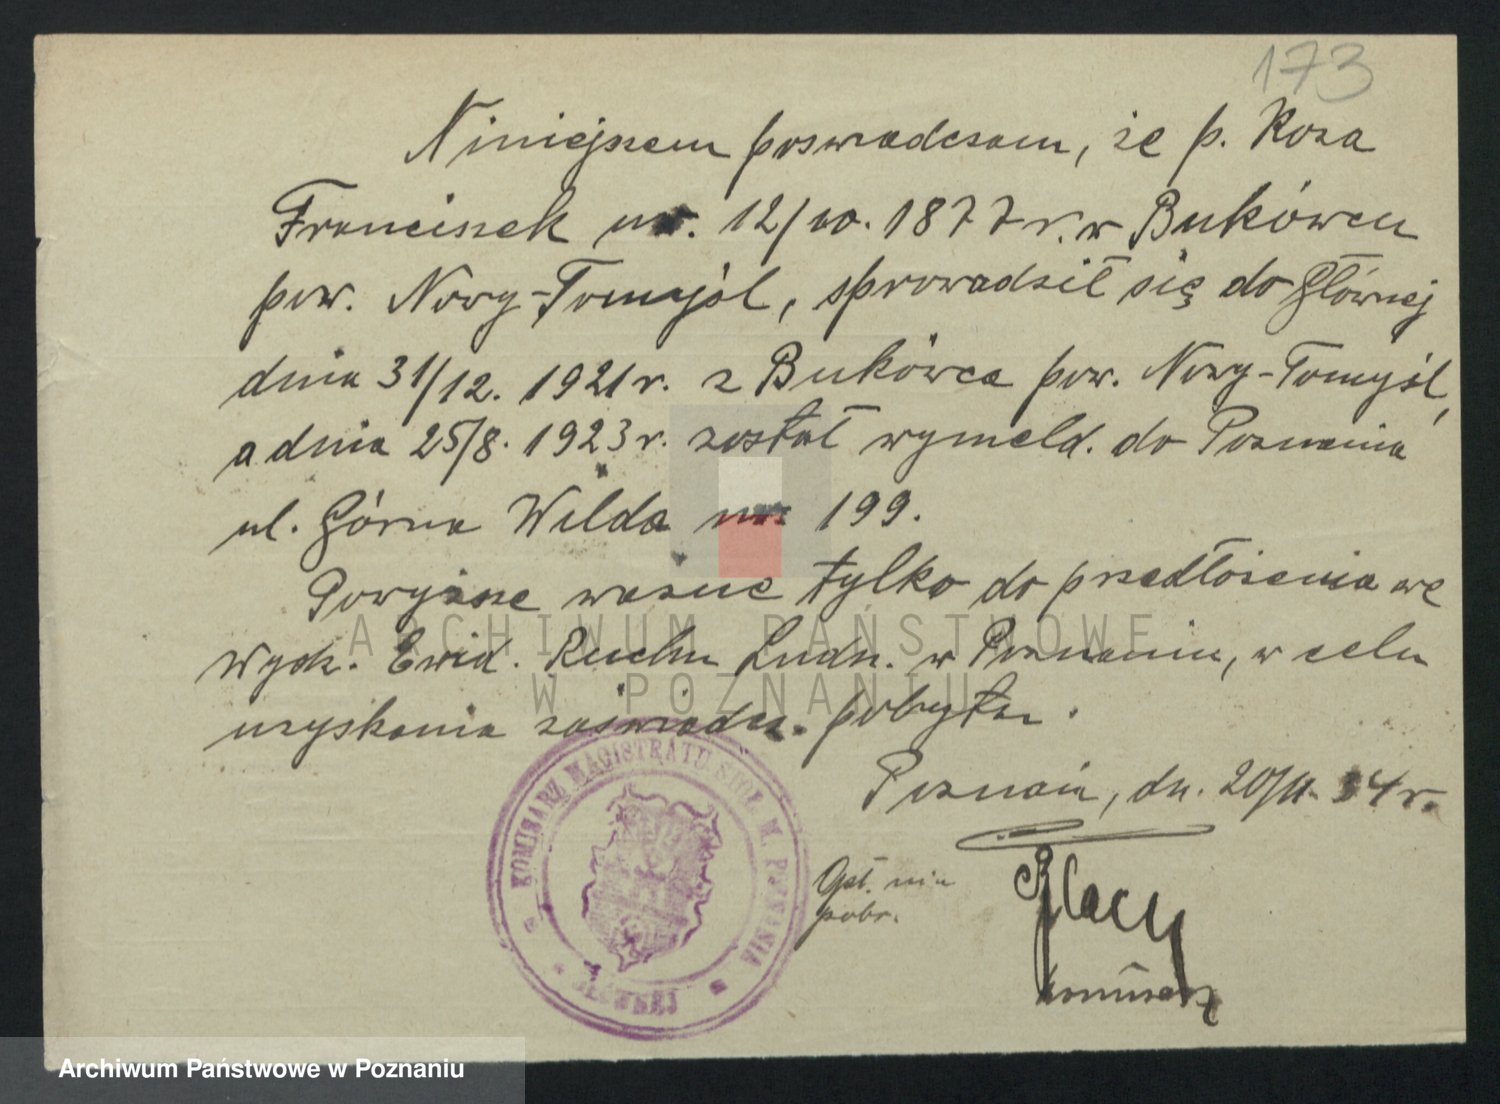 173
Niniejszem poswiadczam, że p. Koza
Franciszek ur. 12/10. 1877 r. w Bukówcu
pow. Nowy-Tomyśl, sprowadził się do Głównej
dnia 31/12. 1921 r. z Bukówca pow. Nowy-Tomyśl,
a dnia 25/8. 1923 r. został wymeld. do Poznania
ul. Górna Wilda nr. 199.
Powyższe ważne tylko do przedłożenia we
Wydz. Ewid. Ruchu Ludn. w Poznaniu, w celu
uzyskania zaświadcz. pobytu.
Poznań, dn. 20/II. 34 r.
Opł. nie
pobr.
komisarz
KOMISARZ MAGISTRATU STOŁ. M. POZNANIA
GŁÓWNEJ
ARCHIWUM PAŃSTWOWE
W POZNANIU
Archiwum Państwowe w Poznaniu